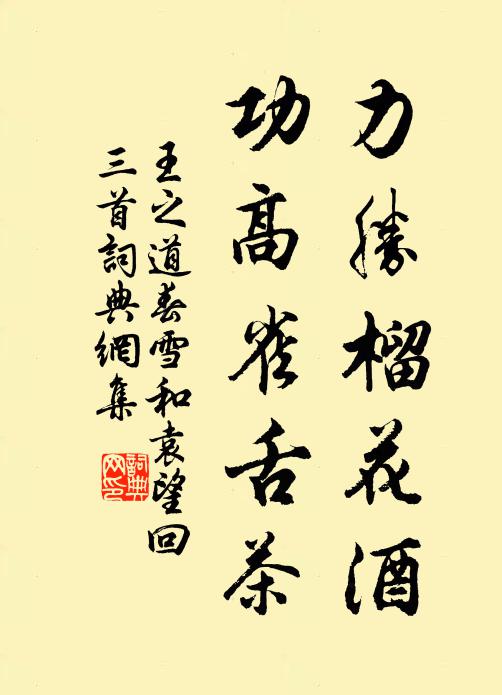 力勝榴花酒
功高雀舌茶
王之道春雪和袁望回
三首詞典網集
詞典
网印